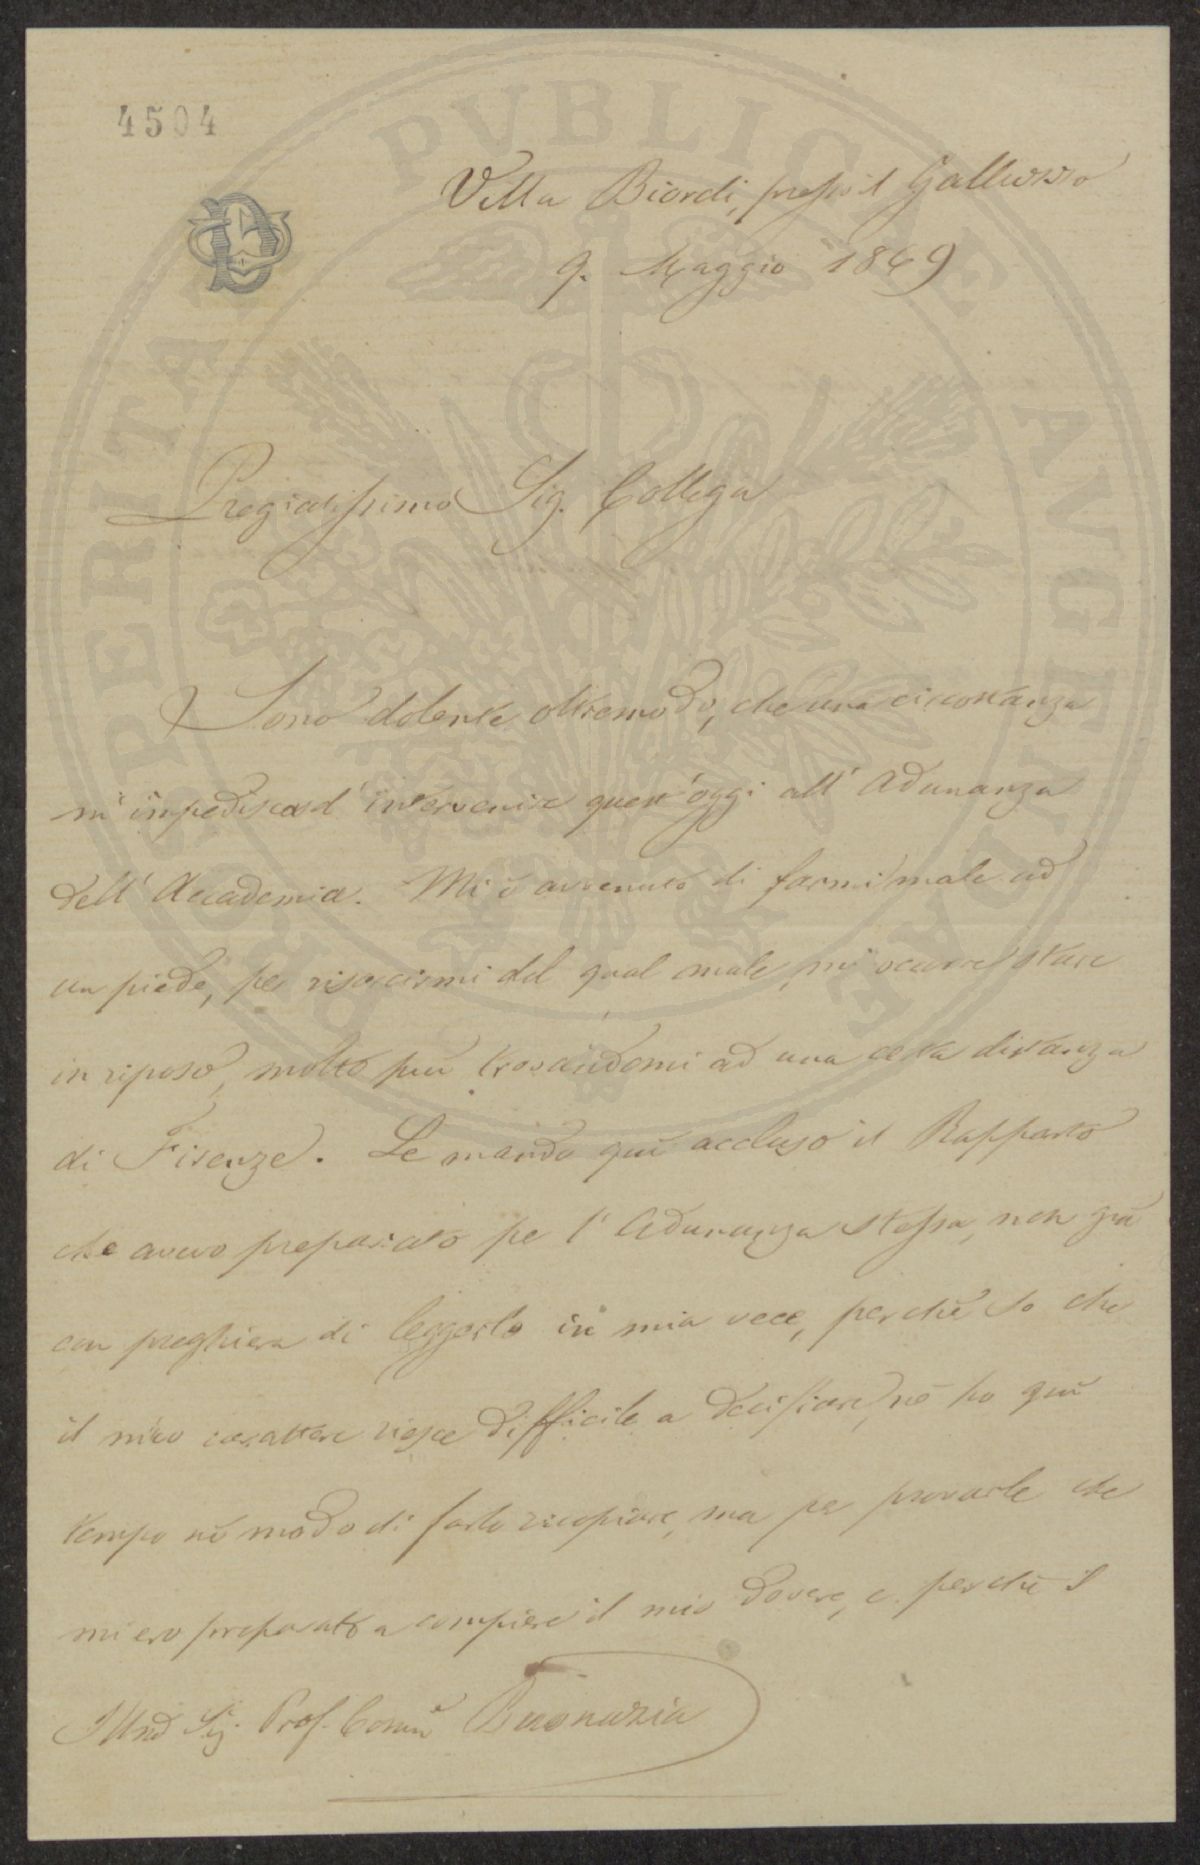 4504
Villa Biondi, presso il Galluzzo
9. Maggio 1869
Pregiatissimo Sig. Collega
Sono dolente oltremodo, che una circostanza
m'impedisca d'intervenire quest'oggi all'Adunanza
dell'Accademia. Mi è avvenuto di farmi male ad
un piede, per risarcirmi del qual male, mi occorre stare
in riposo, molto più trovandomi ad una certa distanza
di Firenze. Le mando quì accluso il Rapporto
che avevo preparato per l'Adunanza stessa, non già
con preghiera di leggerlo in mia vece, perchè so che
il mio carattere riesce difficile a decifrare, nè ho quì
tempo nè modo di farlo ricopiare, ma per provarle che
mi ero preparato a compiere il mio dovere, e perchè il
Illmo Sig. Prof. Buonazia
PUBLICAE AUGENDAE PROSPERITATI